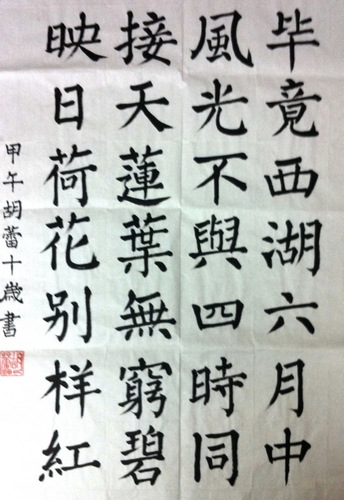 毕竟西湖六月中
風光不與四時同
接天蓮葉無窮碧
映日荷花别样紅
甲午胡蕾十歲書